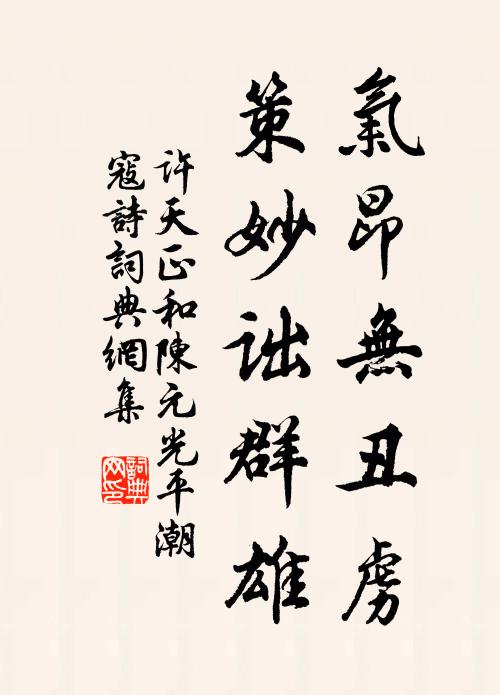 氣昂無丑虜
策妙詘群雄
許天正和陳元光平潮
寇詩詞典網集
詞典網印